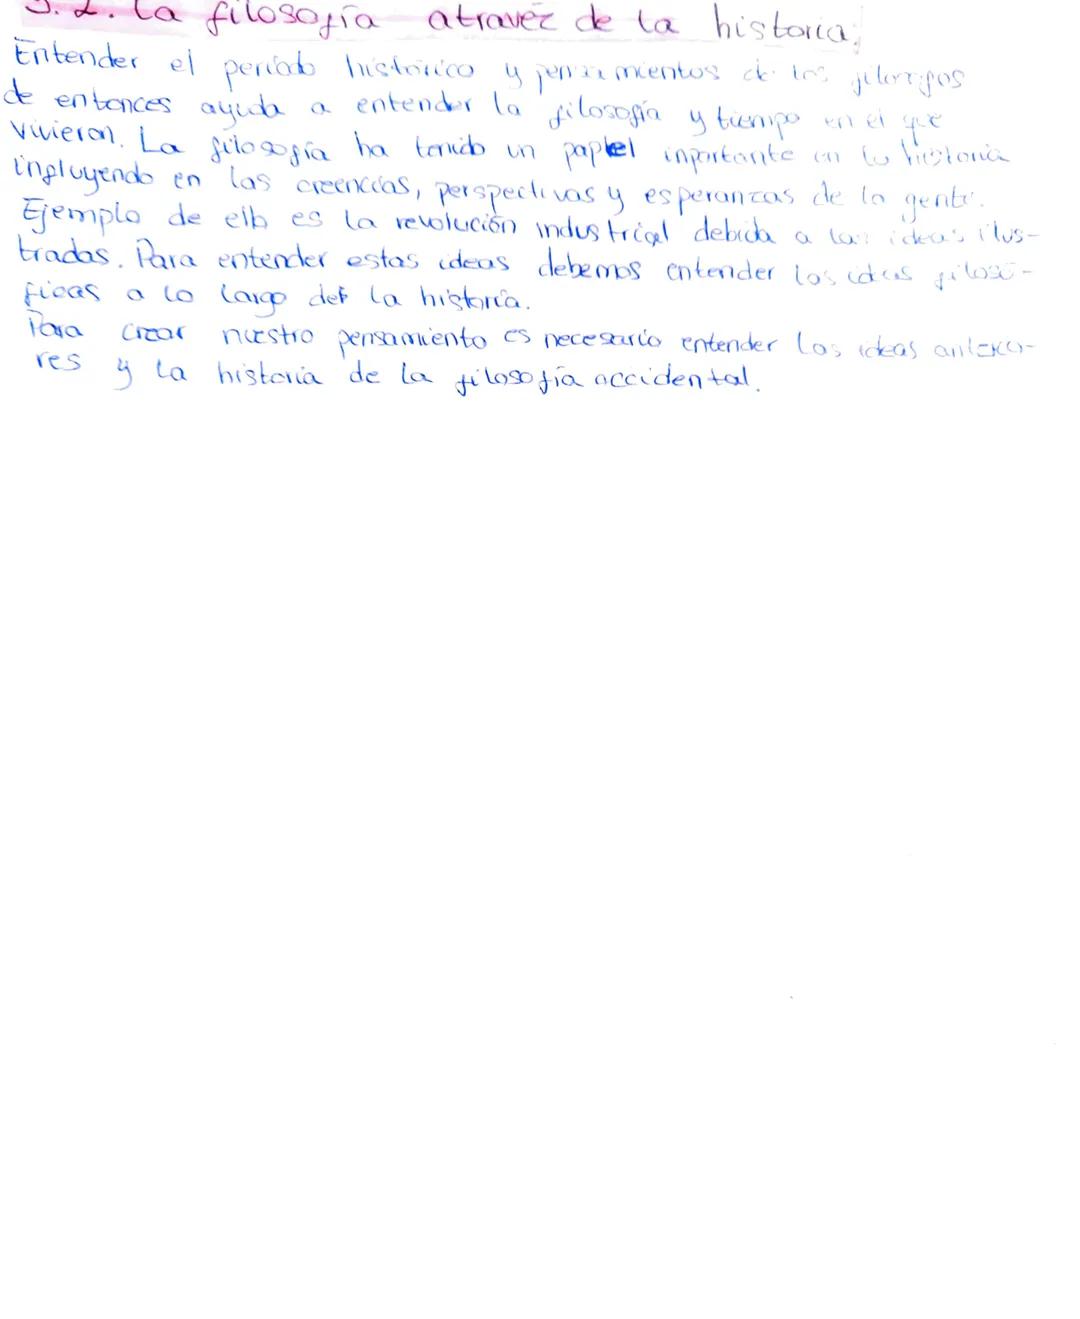 3.2. La filosofía atravéz de la historia.
Entender el periodo histórico y pensamientos de los filosofos
de entonces ayuda a entender la filosofía y tiempo en el que
vivieron. La filosofía ha tenido un papel inportante en la historia
influyendo en las creencias, perspectivas y esperanzas de la gente.
Ejemplo de ello es la revolución industrial debida a las ideas ilus-
tradas. Para entender estas ideas debemos entender las ideas filosó-
ficas a lo largo de la historia.
Para crear nuestro pensamiento es necesario entender las ideas anterio-
res y la historia de la filosofía occidental.